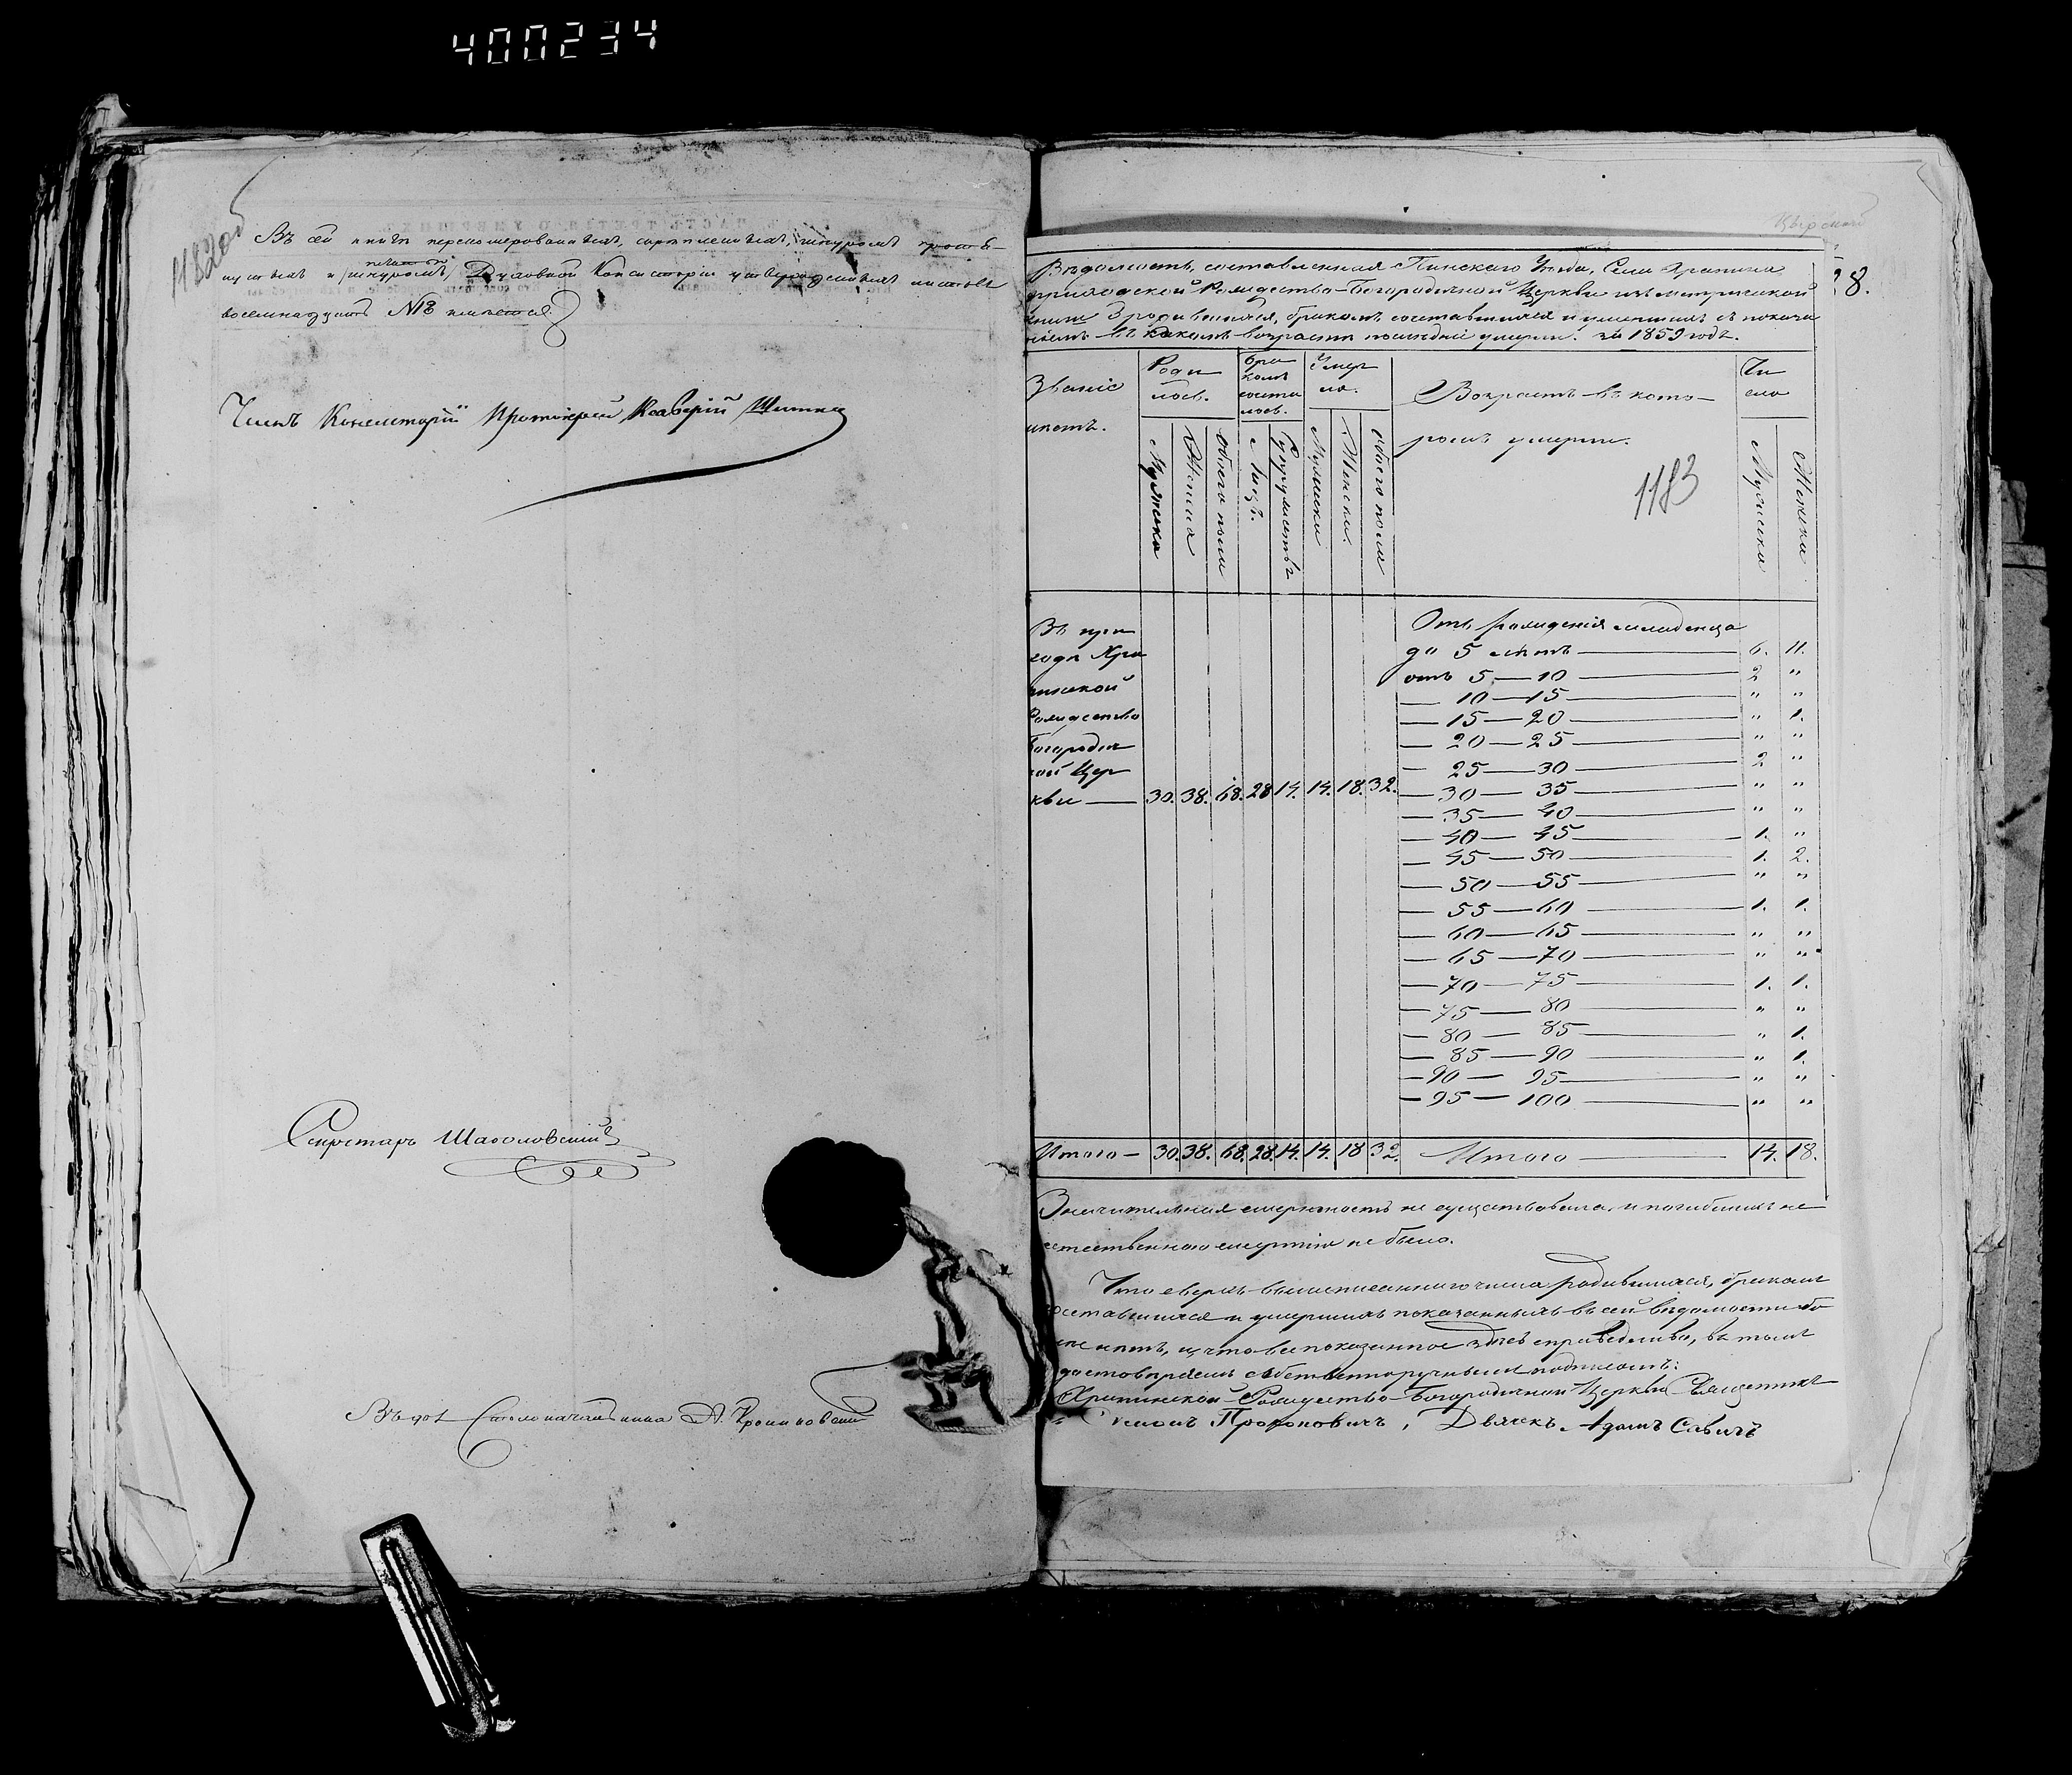 400234
1182 об
Въ сей книгѣ перенумерованныхъ, скрѣпленныхъ, шнуромъ прошну-
печатью
рованныхъ и (шнуромъ) Духовной Консисторіи утвержденныхъ листовъ
восемнадцать №18 имѣется.
Членъ Консисторіи Протоіерей Ксаверій
Секретарь
Столоначальника А.
28.
Вѣдомость, составленная Пинскаго Уѣзда, Села Храпина
приходской Рождество-Богородичной Церкви изъ метрической
книги о родившихся, бракомъ сочетавшихся и умершихъ съ показа
ніемъ въ какомъ возрастѣ послѣдніе умерли. за 1859 годъ.
Званіе
мѣстъ.
Роди
лось.
Бра
комъ
сочета
лось.
Умер
ло.
Возрастъ въ кото-
ромъ умерли.
Чи
сло
Мужеска
Женска
Обоего пола
Лицъ.
Супружествъ
Мужеска
Женска.
Обоего пола
Мужеска
Женска
1183
Въ при
ходѣ Хра
пинской
Рождество
Богородич
ной Цер
кви — 30. 38. 68. 28 14. 14. 18. 32.
Отъ рожденія младенца
до 5 лѣтъ — 6. 11.
отъ 5 — 10 — 2 "
— 10 — 15 — " "
— 15 — 20 — " 1.
— 20 — 25 — " "
— 25 — 30 — 2 "
— 30 — 35 — " "
— 35 — 40 — " "
— 40 — 45 — 1. "
— 45 — 50 — 1. 2.
— 50 — 55 — " "
— 55 — 60 — 1. 1.
— 60 — 65 — " "
— 65 — 70 — " "
— 70 — 75 — 1. 1.
— 75 — 80 — " "
— 80 — 85 — " 1.
— 85 — 90 — " 1.
— 90 — 95 — " "
— 95 — 100 — " "
Итого — 30. 38. 68. 28. 14. 14. 18 32. Итого — 14. 18.
Значительная смертность не существовала и погибшихъ не
естественною смертію не было.
Что сверхъ вышеписаннаго числа родившихся, бракомъ
сочетавшихся и умершихъ показанныхъ въ сей вѣдомости бо
лѣе нѣтъ, и что все показанное здѣсь справедливо, въ томъ
удостовѣряемъ собственноручнымъ подписомъ:
Храпинской Рождество-Богородичной Церкви Священникъ
Прокоповичъ, Дьячекъ Адамъ Савичъ